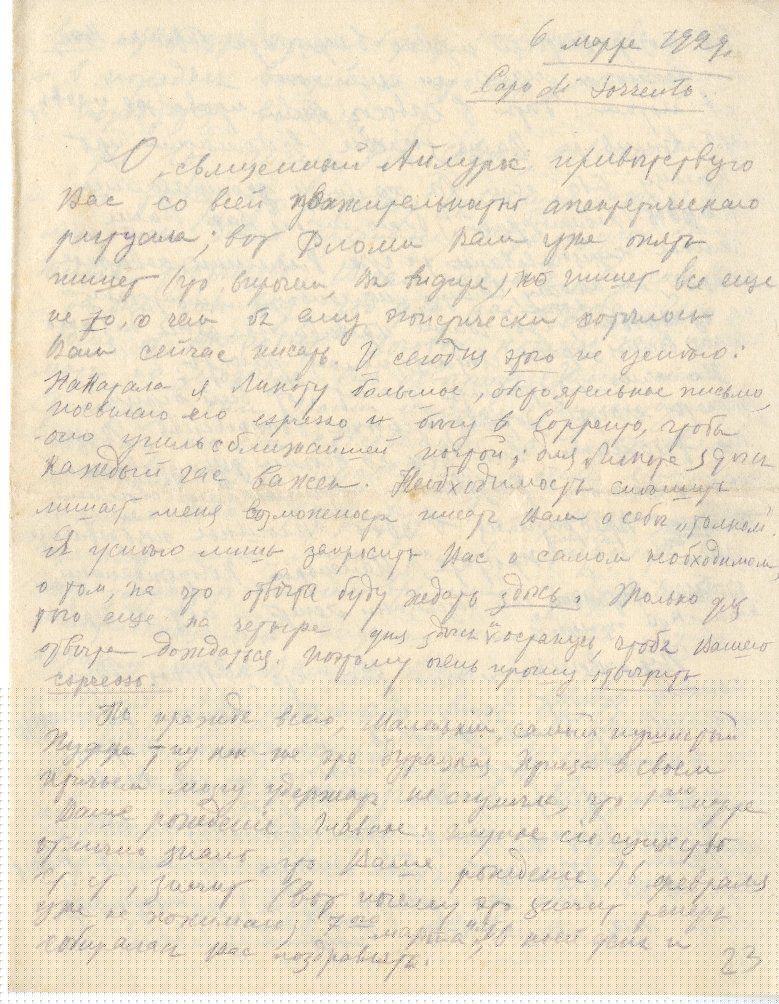 6 марта 1929.
Capo di Sorrento.
О, священный Аймурк! приветствую
Вас со всей уважительностью
ритуала; вот Фломи Вам уже опять
пишет (что, впрочем, Вы видите), но пишет все еще
не то, о чем бы ему хотелось
Вам сейчас писать. И сегодня этого не успею:
Накатала я большое, письмо,
посылаю его espresso и бегу в Сорренто, чтобы
оно ближайшей почтой; для здесь
каждый час важен. Необходимость спешить
лишает меня возможности писать Вам о себе „толком".
Я успею лишь запросить Вас о самом необходимом,
о том, на что ответа буду ждать здесь. Только для
того еще на четыре дня здесь и останусь, чтобы Вашего
ответа дождаться. Поэтому очень прошу ответить
espresso.
Но прежде всего, Маленький, самый
ну как же эта дурацкая птица в своем
птичьем мозгу удержать не сумела, что 1го марта
Ваше рождение. Главное: глупое сие существо
отлично знало, что Ваше рождение 16 февраля
ст. ст., значит (вот почему это значит теперь
уже не понимаю) 7ого марта, в коей день и
собиралась Вас поздравить.
23